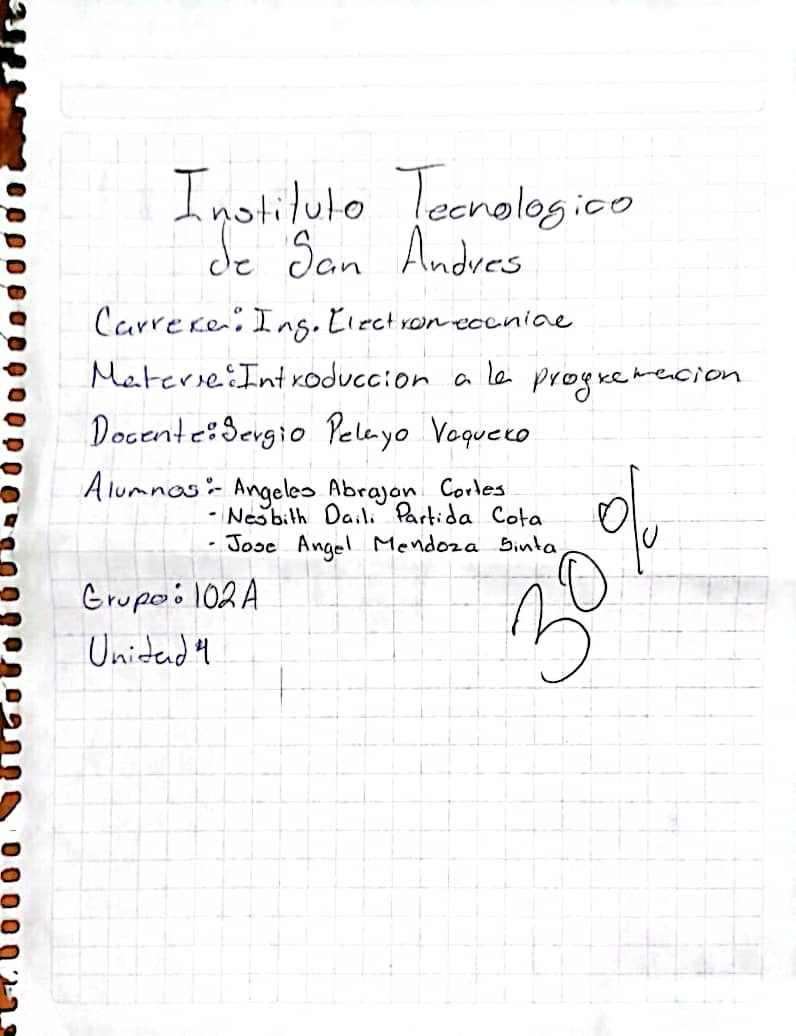 Instituto Tecnologico
de San Andres
Carrera: Ing. Electromecanica
Materia: Introduccion a la programacion
Docente: Sergio Pelayo Vaquero
Alumnos: - Angeles Abrajan Cortes
- Nesbith Daili Partida Cota
- Jose Angel Mendoza Sinta
30%
Grupo: 102A
Unidad 4